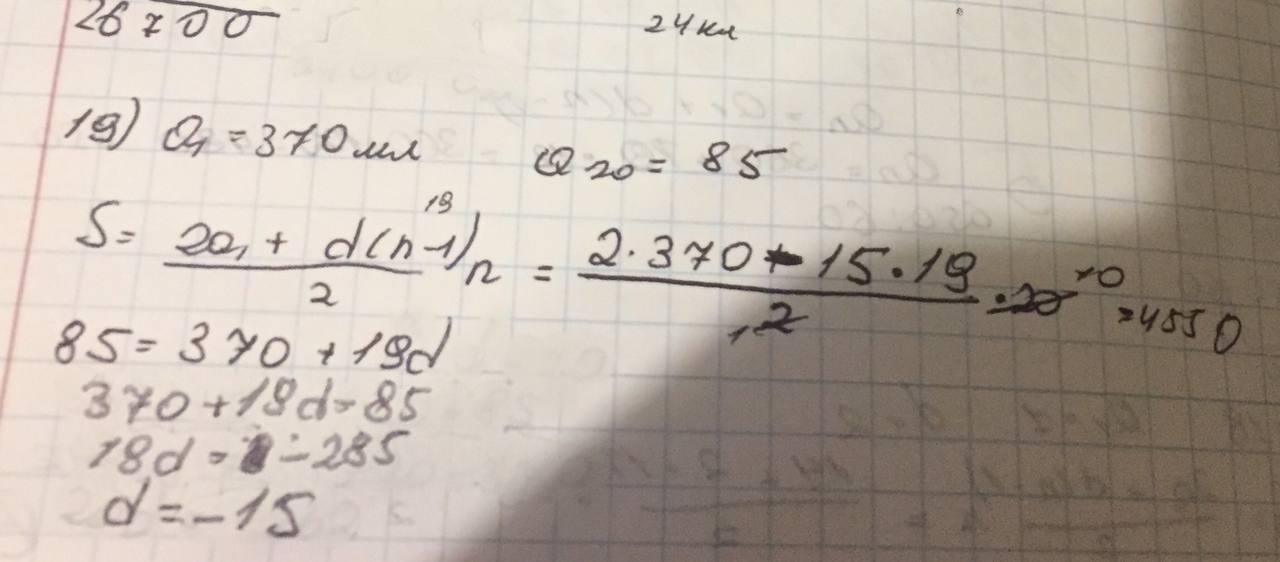 26700
24 кл
19) a₁ = 370 мл a₂₀ = 85
S = \frac{2a₁ + d(n-1)^{19}}{2} n = \frac{2·370 - 15·19}{2} · 20 10 = 4550
1
85 = 370 + 19d
370 + 19d = 85
19d = -285
d = -15